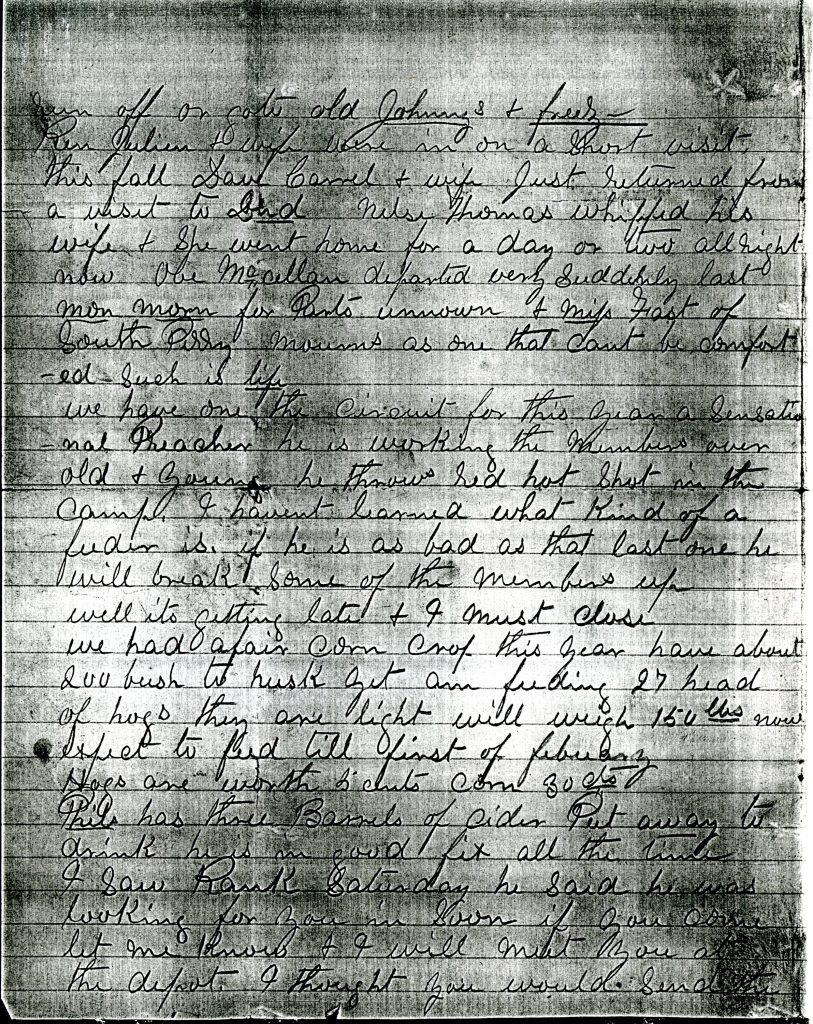 off or goto old Johnnys & freez -
Ren Julien & wife were in on a Short visit
this fall Dave Carrel & wife Just returned from
a visit to Ind Nelse Thomas whipped his
wife & She went home for a day or two all right
now Obe Mcellan departed very Suddenly last
mon morn for Parts unnown & Miss Fast of
South Perry mourns as one that cant be comfort
-ed Such is life
we have one the Circuit for this year a Sensatio
-nal Preacher he is working the Members over
old & Young he throws red hot Shot in the
Camp. I havent learned what Kind of a
feeder is. if he is as bad as that last one he
will break Some of the Members up
well its getting late & I must close
we had afair Corn Crop this year have about
200 bush to husk yet am feeding 27 head
of hogs they are light will weigh 150 lbs now
expect to feed till first of febuary
Hogs are worth 5 cents corn 30 cts
Phile has three Barrels of cider Put away to
drink he is in good fix all the time
I Saw Rank Saturday he Said he was
looking for you in Soon if you come
let me Know & I will meet you at
the depot. I thought you would Send the